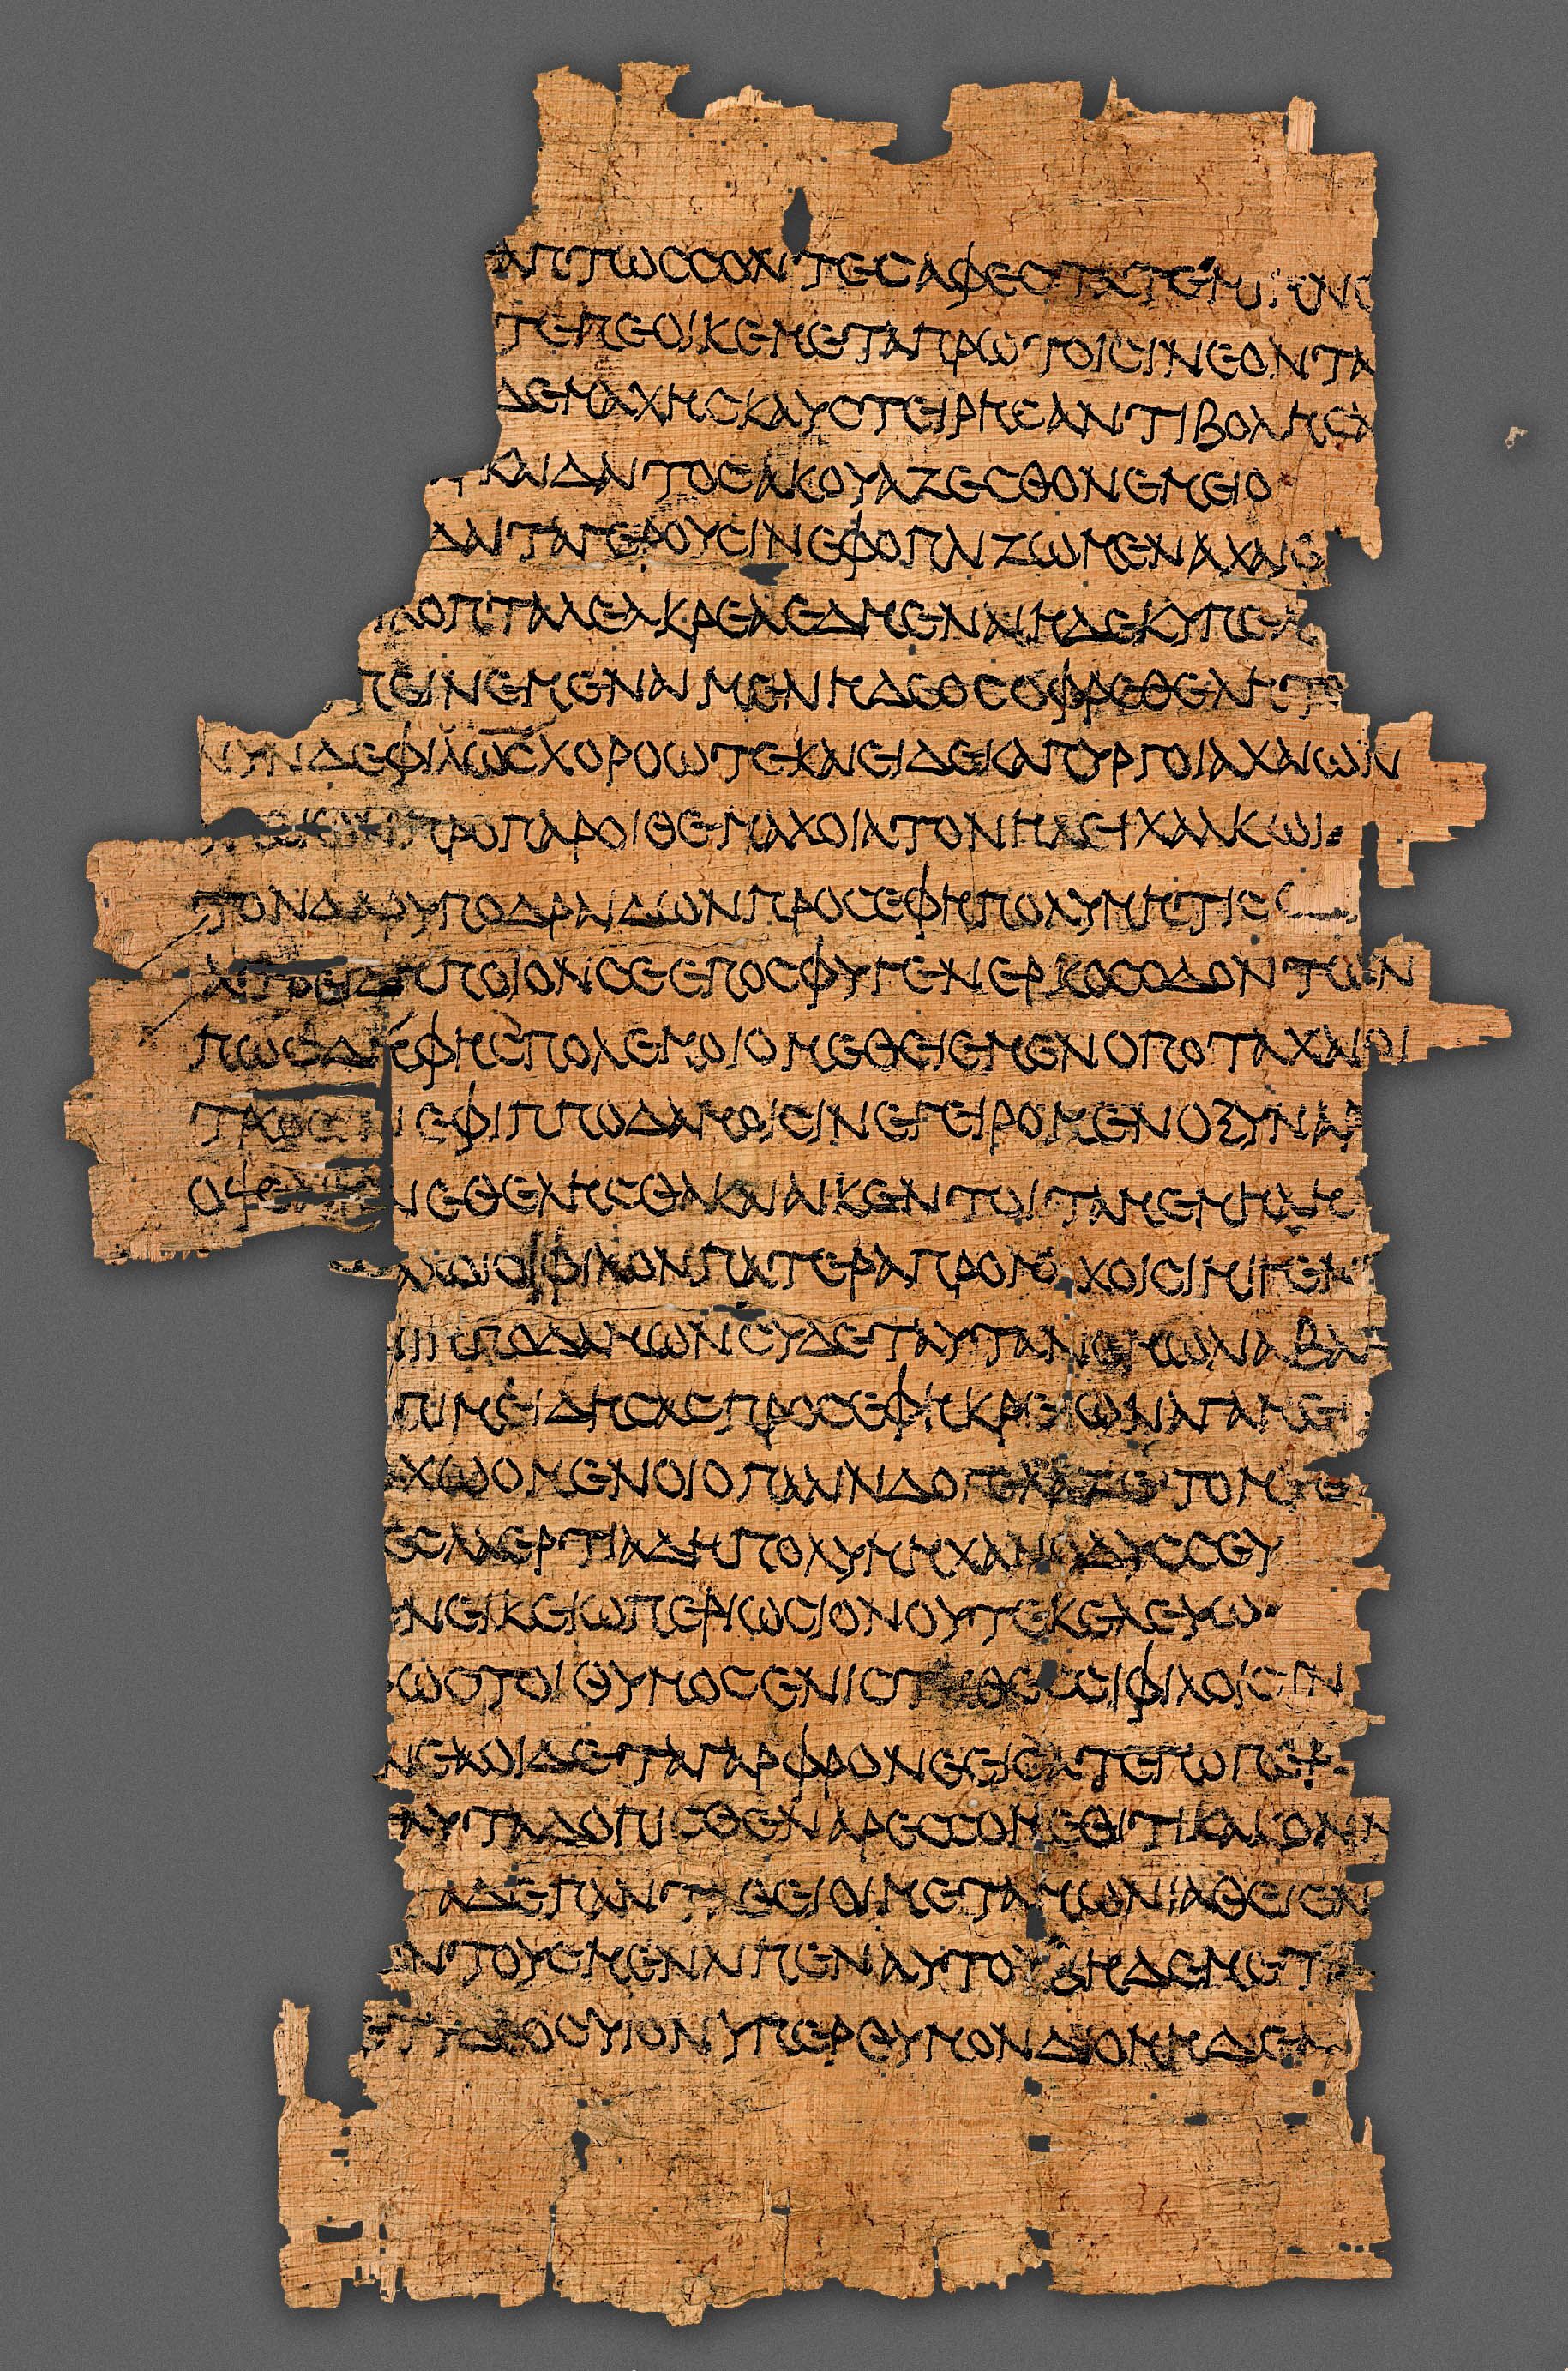 ΑΠΤΩϹϹΟΝΤΕϹΑΦΕϹΤΑΤΕΜΙ
ΤΕΠΕΟΙΚΕΜΕΤΑΠΡΩΤΟΙϹΙΝΕΟΝΤΑ
ΔΕΜΑΧΗϹΚΑΥϹΤΕΙΡΗϹΑΝΤΙΒΟΛΗϹΑ
ΚΑΙΔΑΙΤΟϹΑΚΟΥΑΖΕϹΘΟΝΕΜΕΙΟ
ΔΑΙΤΑΓΕΡΟΥϹΙΝΕΦΟΠΛΙΖΩΜΕΝΑΧΑΙΟ
ΛΟΠΤΑΛΕΑΚΡΕΑΕΔΜΕΝΑΙΗΔΕΚΥΠΕΛ
ΠΕΙΝΕΜΕΝΑΙΜΕΛΙΗΔΕΟϹΟΦΡΕΘΕΛΗΤΟ
ΝΥΝΔΕΦΙΛΩϹΧΟΡΟΩΤΕΚΑΙΕΙΔΕΚΑΠΥΡΓΟΙΑΧΑΙΩΝ
ΠΡΟΠΑΡΟΙΘΕΜΑΧΟΙΑΤΟΝΗΛΕΙΧΑΛΚΩΙ
ΤΟΝΔΑΡΥΠΟΔΡΑΙΔΩΝΠΡΟϹΕΦΗΠΟΛΥΜΗΤΙϹ
ΑΤΡΕΙΔΗΠΟΙΟΝϹΕΕΠΟϹΦΥΓΕΝΕΡΚΟϹΟΔΟΝΤΩΝ
ΠΩϹΔΗΦΗϹΠΟΛΕΜΟΙΟΜΕΘΕΙΕΜΕΝΟΠΟΤΑΧΑΙΟΙ
ΤΡΩϹΙΝΕΦΙΠΠΟΔΑΜΟΙϹΙΝΕΓΕΙΡΟΜΕΝΟΞΥΝΑΡ
ΟΨΕΑΙΗΝΕΘΕΛΗϹΘΑΚΑΙΑΙΚΕΝΤΟΙΤΑΜΕΜΗΛΗ
ΑΧΟΙΟΦΙΛΟΝΠΑΤΕΡΑΠΡΟΜΑΧΟΙϹΙΜΙΓΕΝ
ΙΠΠΟΔΑΜΩΝϹΥΔΕΤΑΥΤΑΝΕΜΩΛΙΑΒΑΖ
ΠΙΜΕΙΔΗϹΑϹΠΡΟϹΕΦΗΚΡΕΙΩΝΑΓΑΜΕ
ΧΩΟΜΕΝΟΙΟΠΑΛΙΝΔΟΓΕΛΑΖΕΤΟΜΥΘ
ΕϹΛΑΕΡΤΙΑΔΗΠΟΛΥΜΗΧΑΝΟΔΥϹϹΕΥ
ΝΕΙΚΕΙΩΠΕΡΙΩϹΙΟΝΟΥΤΕΚΕΛΕΥΩ
ΩϹΤΟΙΘΥΜΟϹΕΝΙϹΤΗΘΕϹϹΙΦΙΛΟΙϹΙΝ
ΝΕΑΟΙΔΕΤΑΓΑΡΦΡΟΝΕΕΙϹΑΤΕΓΩΠΕΡ
ΑΥΤΑΔΟΠΙϹΘΕΝΑΡΕϹϹΟΜΕΘΙΤΙΚΑΚΟΝΝ
ΤΑΔΕΠΑΝΤΑΘΕΙΟΙΜΕΤΑΜΩΝΙΑΘΕΙΕΝ
ΝΤΟΥϹΜΕΝΛΙΠΕΝΑΥΤΟΥΒΗΔΕΜΕΤ
ΕΤΥΔΕΟϹΥΙΟΝΥΠΕΡΘΥΜΟΝΔΙΟΜΗΔΕΑ